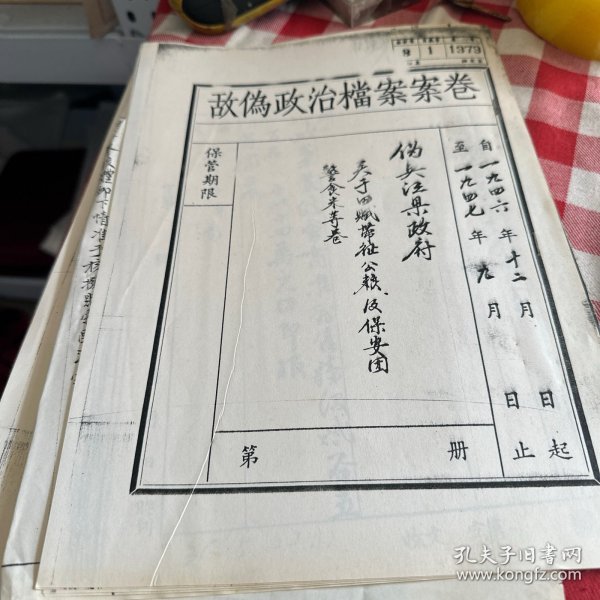 9 1 1373
敌偽政治檔案案卷
自一九四六年十二月 日起
至一九四七年九月 日止
伪兴汪县政府
关于田赋带征公粮及保安团
警食米等卷
保管期限
第 册
孔夫子旧书网
www.kongfz.com